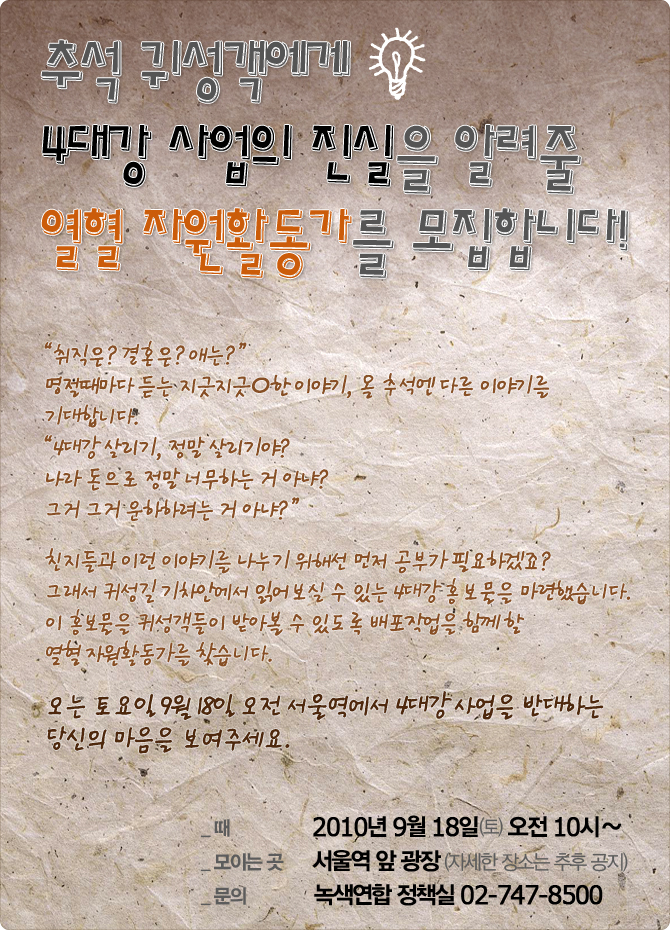 추석 귀성객에게
4대강 사업의 진실을 알려줄
열혈 자원활동가를 모집합니다!
“취직은? 결혼은? 애는?”
명절때마다 듣는 지긋지긋○한 이야기, 올 추석엔 다른 이야기를
기대합니다.
“4대강 살리기, 정말 살리기야?
나라 돈으로 정말 너무하는 거 아냐?
그거 그거 운하하려는 거 아냐?”
친지들과 이런 이야기를 나누기 위해선 먼저 공부가 필요하겠죠?
그래서 귀성길 기차안에서 읽어보실 수 있는 4대강 홍보물을 마련했습니다.
이 홍보물을 귀성객들이 받아볼 수 있도록 배포작업을 함께 할
열혈 자원활동가를 찾습니다.
오는 토요일 9월 18일 오전 서울역에서 4대강 사업을 반대하는
당신의 마음을 보여주세요.
_ 때 2010년 9월 18일(토) 오전 10시~
_ 모이는 곳 서울역 앞 광장 (자세한 장소는 추후 공지)
_ 문의 녹색연합 정책실 02-747-8500